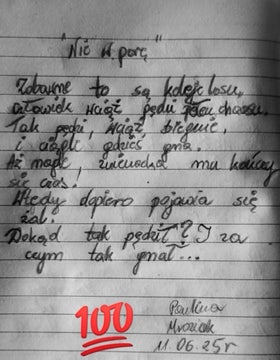 "Nić w porę"
Zabawne to są koleje losu,
człowiek wciąż pędzi
Tak pędzi, wciąż biegnie,
i ciągle gdzieś gna.
Aż nagle, mu kończy
się czas.
Wtedy dopiero pojawia się
żal.
Dokąd tak pędził? I za
czym tak gnał...
100
Paulina
Mroziak
11.06.25r